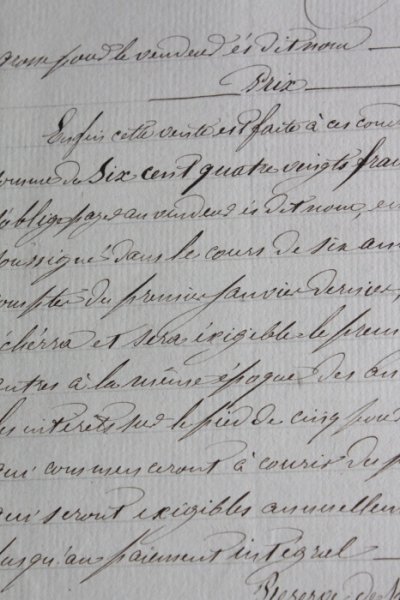 pour le vendeur ès dit nom
Prix
Enfin cette vente est faite à ces cond
somme de Six cent quatre vingts fran
oblige payer au vendeur ès dit nom, en
soussigné dans le cours de six ann
compter du premier Janvier dernier,
écherra et sera exigible le prem
autres à la même époque des an
les intérêts sur le pied de cinq pour
qui commenceront à courir du p
qui seront exigibles annuellem
jusqu'au paiement intégral
Réserve de